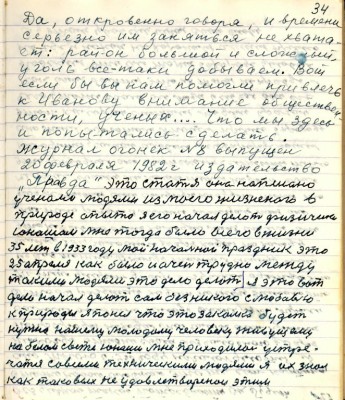 34
Да, откровенно говоря, и времени
серьезно им заняться не хвата-
ет: район большой и сложный,
уголь все-таки добываем. Вот
если бы вы нам помогли привлечь
к Иванову внимание обществен
ности, ученых.... Что мы здесь
и попытались сделать.
Журнал огонек № 8 выпущен
20 февраля 1982 г издательство
"Правда" Это статя она написано
учеными людями из моего жизненого в
природе опыта я его начал делат физически
юношам мне тогда было всего в жизни
35 лет, в 1933 году, мой началной праздник это
25 апреля как было и очен трудно между
такими людями это дело делат я это вот
дело начал делат сам без никого с любовю
к природы я понел что это закалка будет
нужна нашему молодому человеку живущему
на белом свете юноши мне приходилос встре-
чатся с всеми техническими людями я их знал
как таковых не удовлетвореной этим